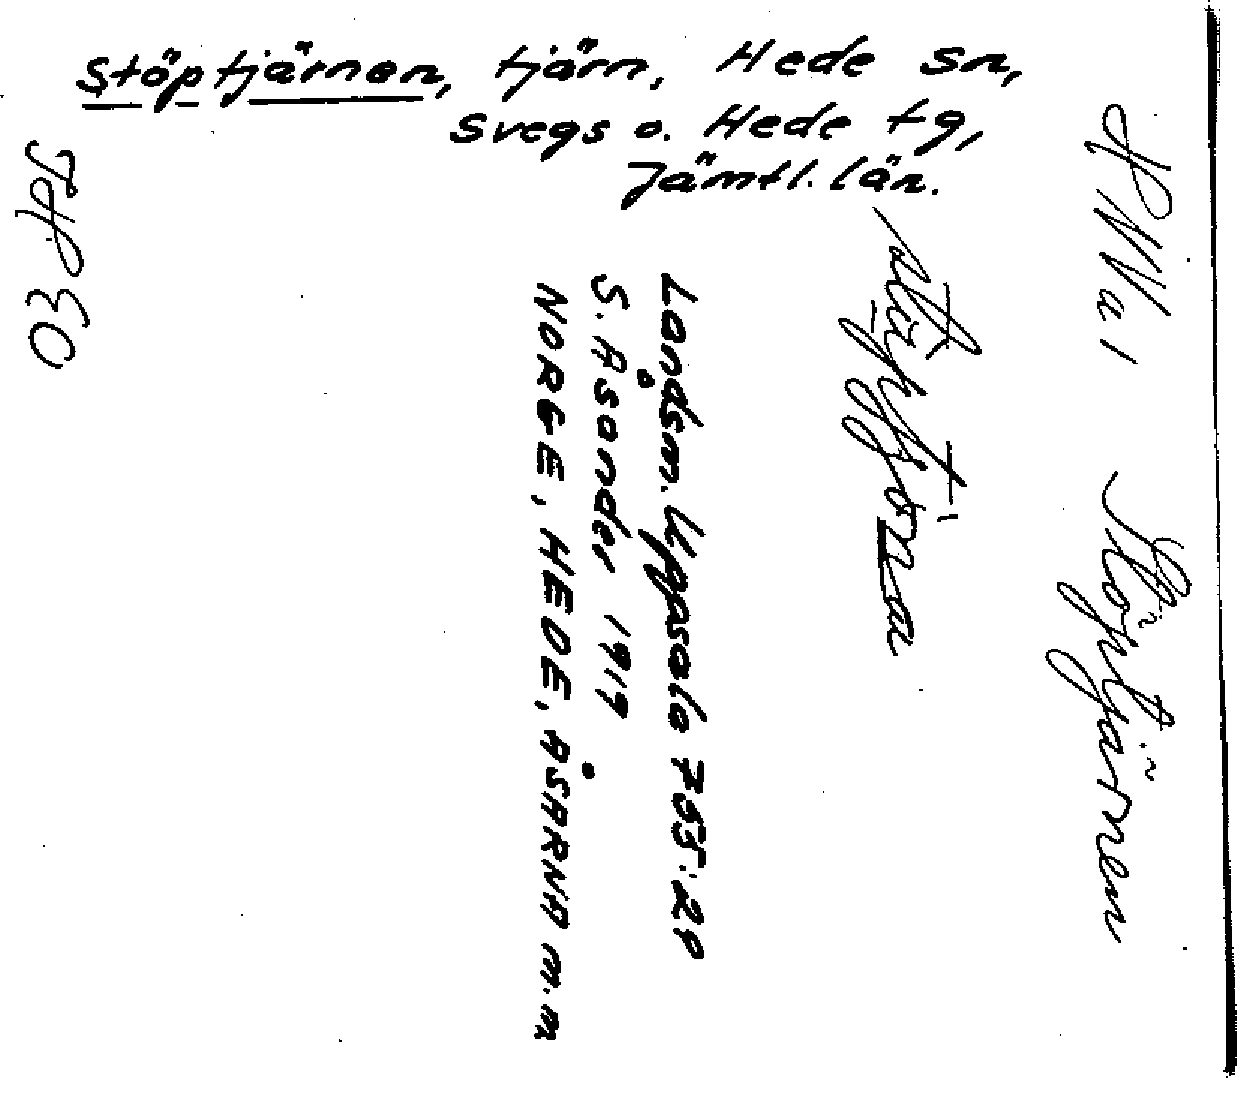 Stöptjärnen, tjärn, Hede sn,
Svegs o. Hede tg,
Jämtl. län.
HNWa 1 Stöptjärnen
Landsm. Uppsala 755:2P
S. Åsander 1919
NORGE, HEDE, ÅSARNA m.m